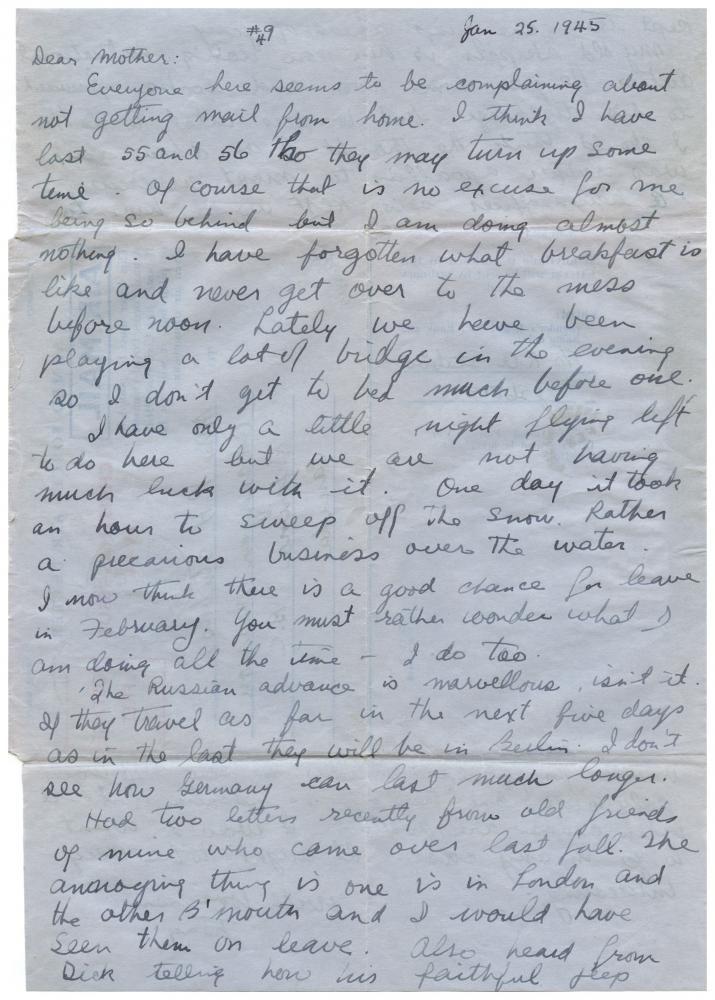 #9
4
Jan 25. 1945
Dear Mother:
Everyone here seems to be complaining about
not getting mail from home. I think I have
lost 55 and 56 tho they may turn up some
time. Of course that is no excuse for me
being so behind but I am doing almost
nothing. I have forgotten what breakfast is
like and never get over to the mess
before noon. Lately we have been
playing a lot of bridge in the evening
so I don't get to bed much before one.
I have only a little night flying left
to do here but we are not having
much luck with it. One day it took
an hour to sweep off the snow. Rather
a precarious business over the water.
I now think there is a good chance for leave
in February. You must rather wonder what I
am doing all the time - I do too.
The Russian advance is marvellous, isn't it.
If they travel as far in the next five days
as in the last they will be in Berlin. I don't
see how Germany can last much longer.
Had two letters recently from old friends
of mine who came over last fall. The
annoying thing is one is in London and
the other B'mouth and I would have
seen them on leave. Also heard from
Dick telling how his faithful jeep